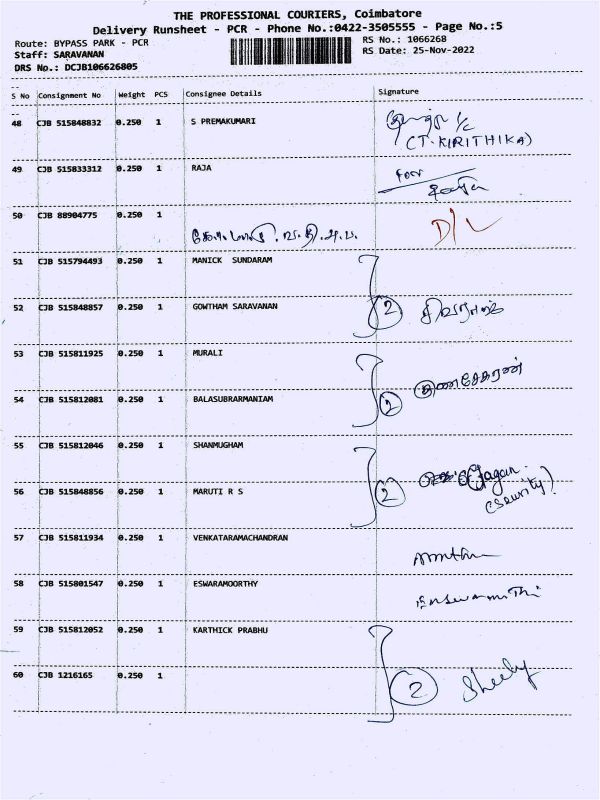 THE PROFESSIONAL COURIERS, Coimbatore
Delivery Runsheet - PCR - Phone No.:0422-3505555 - Page No.:5
Route: BYPASS PARK - PCR
RS No.: 1066268
Staff: SARAVANAN
RS Date: 25-Nov-2022
DRS No.: DCJB106626805
S No Consignment No Weight PCS Consignee Details Signature
48 CJB 515848832 0.250 1 S PREMAKUMARI
(T.KIRITHIKA)
49 CJB 515833312 0.250 1 RAJA
for
50 CJB 88904775 0.250 1 D/L
51 CJB 515794493 0.250 1 MANICK SUNDARAM
52 CJB 515848857 0.250 1 GOWTHAM SARAVANAN 2 சிவராஜ்
53 CJB 515811925 0.250 1 MURALI
54 CJB 515812081 0.250 1 BALASUBRARMANIAM 2 குணசேகரன்
55 CJB 515812046 0.250 1 SHANMUGHAM
56 CJB 515848856 0.250 1 MARUTI R S 2 Jagan
(Security)
57 CJB 515811934 0.250 1 VENKATARAMACHANDRAN
58 CJB 515801547 0.250 1 ESWARAMOORTHY
59 CJB 515812052 0.250 1 KARTHICK PRABHU
60 CJB 1216165 0.250 1 2